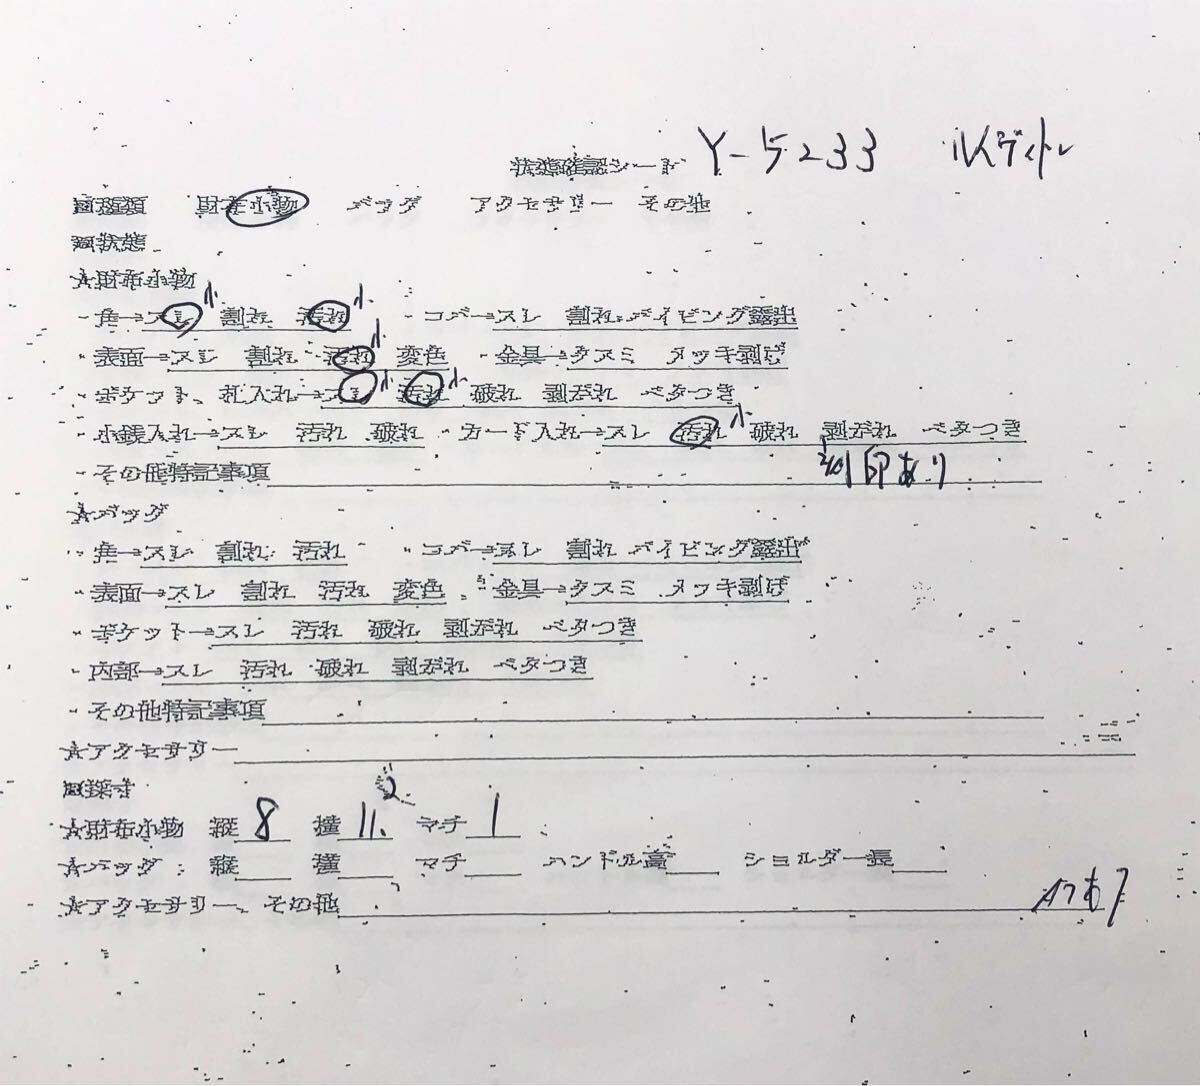 状態確認シート Y-5233 ルイヴィトン
□種類 財布小物 バッグ アクセサリー その他
□状態
★財布小物
・角→スレ 小 割れ 汚れ 小 ・コバ→スレ 割れ パイピング露出
・表面→スレ 割れ 汚れ 小 変色 ・金具→クスミ メッキ剥げ
・ポケット、札入れ→スレ 小 汚れ 小 破れ 剥がれ ベタつき
・小銭入れ→スレ 汚れ 破れ ・カード入れ→スレ 汚れ 小 破れ 剥がれ ベタつき
・その他特記事項 刻印あり
★バッグ
・角→スレ 割れ 汚れ ・コバ→スレ 割れ パイピング露出
・表面→スレ 割れ 汚れ 変色 ・金具→クスミ メッキ剥げ
・ポケット→スレ 汚れ 破れ 剥がれ ベタつき
・内部→スレ 汚れ 破れ 剥がれ ベタつき
・その他特記事項
★アクセサリー
□採寸
★財布小物 縦 8 横 11. 2 マチ 1
★バッグ 縦 横 マチ ハンドル高 ショルダー長
★アクセサリー、その他